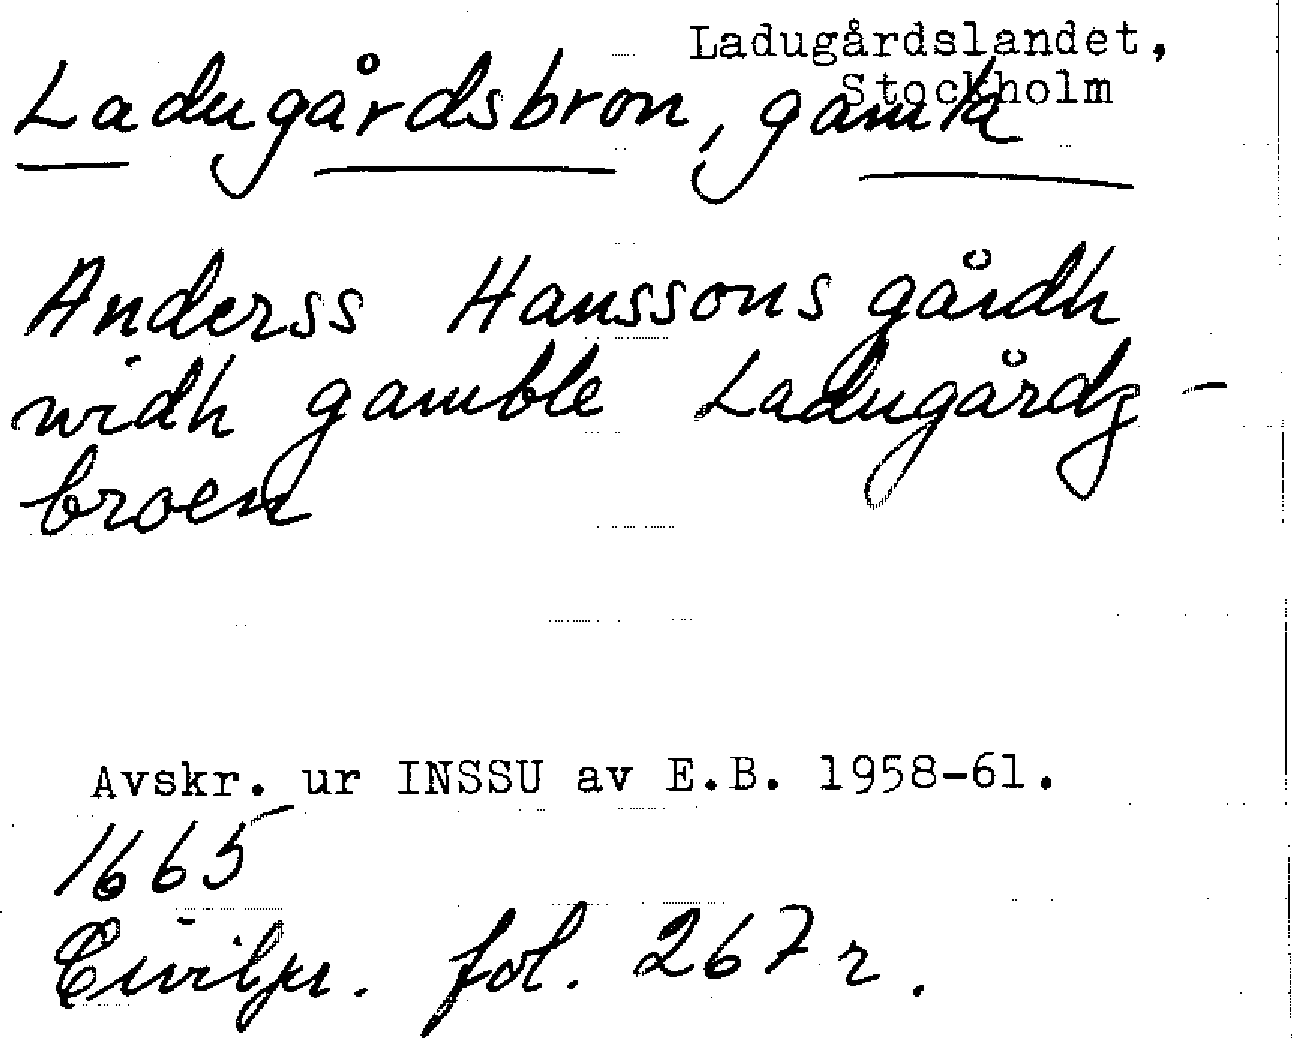 Ladugårdslandet,
Stockholm
Ladugårdsbron, gamla
Anderss Hanssons gårdh
widh gamble Ladugårdz-
broen
Avskr. ur INSSU av E.B. 1958-61.
1665
Civilpr. fol. 267 r.